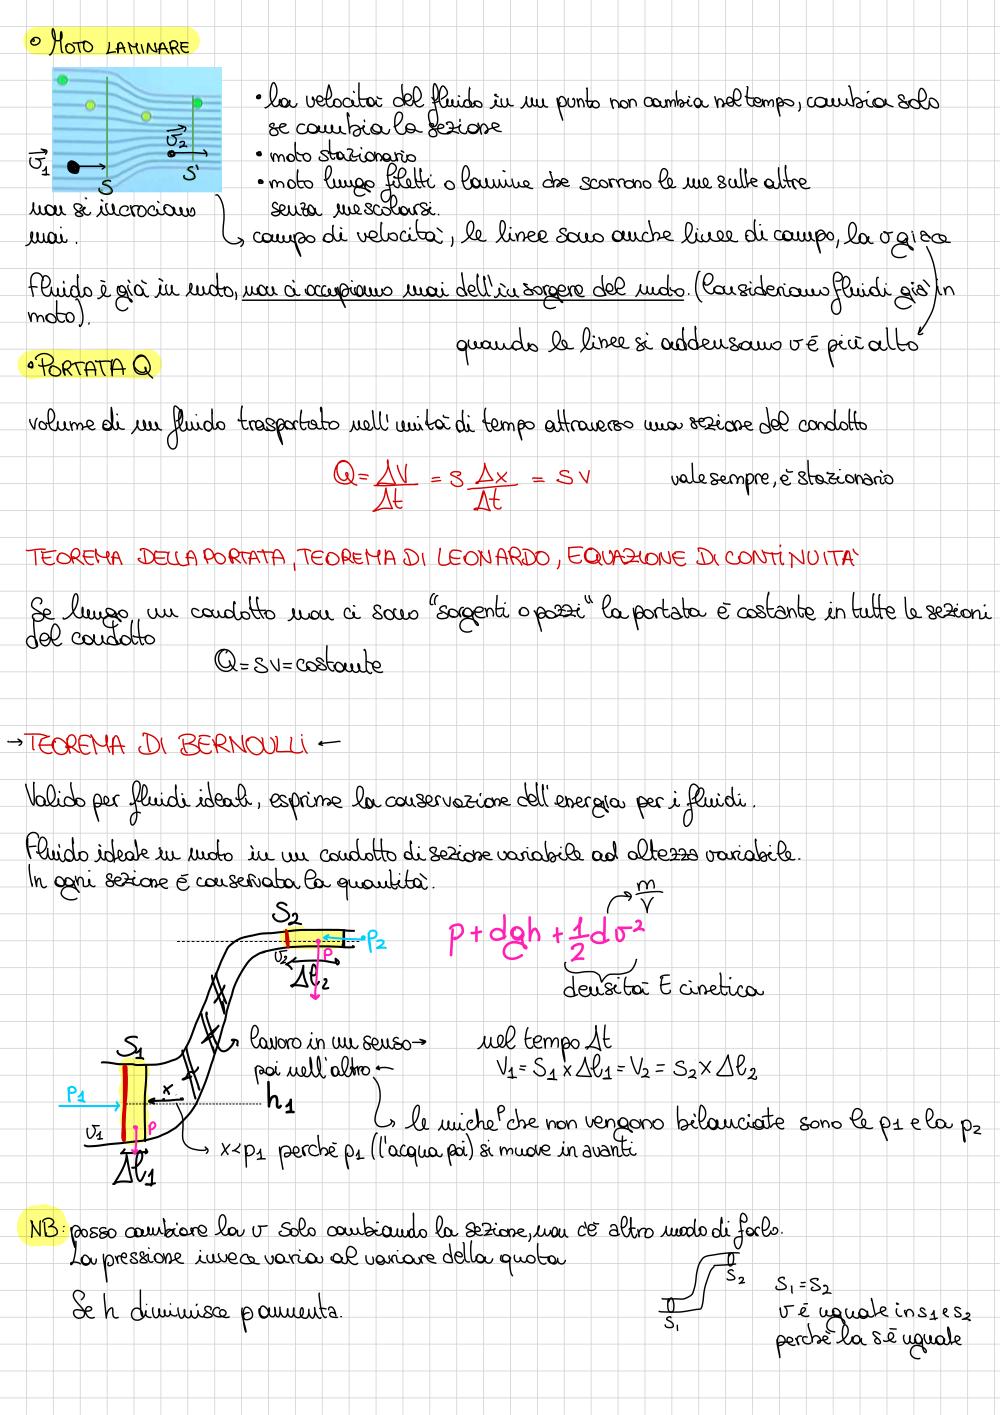 • MOTO LAMINARE
• la velocità del fluido in un punto non cambia nel tempo, cambia solo
se cambia la sezione
• moto stazionario
• moto lungo filetti o lamine che scorrono le une sulle altre
senza mescolarsi.
v1
v2
S
S'
non si incrociano
mai.
campo di velocità, le linee sono anche linee di campo, la v gioca
fluido è già in moto, non ci occupiamo mai dell'insorgere del moto. (Consideriamo fluidi già in
moto).
quando le linee si addensano v è più alto
• PORTATA Q
volume di un fluido trasportato nell'unità di tempo attraverso una sezione del condotto
Q = ΔV/Δt = S Δx/Δt = S V
vale sempre, è stazionario
TEOREMA DELLA PORTATA, TEOREMA DI LEONARDO, EQUAZIONE DI CONTINUITA'
Se lungo un condotto non ci sono "sorgenti o pozzi" la portata è costante in tutte le sezioni
del condotto
Q = SV = costante
→ TEOREMA DI BERNOULLI ←
Valido per fluidi ideali, esprime la conservazione dell'energia per i fluidi.
Fluido ideale in moto in un condotto di sezione variabile ad altezza variabile.
In ogni sezione è conservata la quantità.
m/V
p + dgh + 1/2 d v²
densità E cinetica
S2
p2
v2
P
Δl2
lavoro in un senso →
poi nell'altro ←
nel tempo Δt
V1 = S1 x Δl1 = V2 = S2 x Δl2
S1
P1
x
h1
v1
P
Δl1
le uniche P che non vengono bilanciate sono le p1 e la p2
x < p1 perchè p1 (l'acqua poi) si muove in avanti
NB: posso cambiare la v solo cambiando la sezione, non c'è altro modo di farlo.
La pressione invece varia al variare della quota
Se h diminuisce p aumenta.
S2
S1
S1 = S2
v è uguale in s1 e s2
perchè la s è uguale